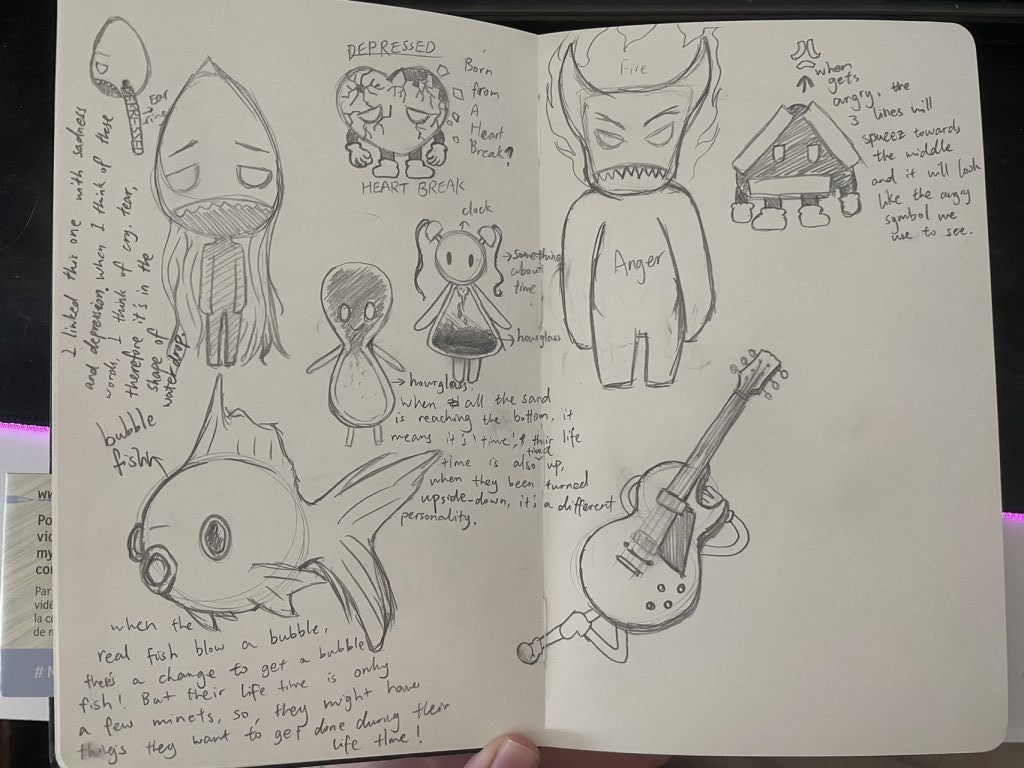 I linked this one with sadness
and depression, when I think of these
words, I think of cry, tear,
therefore it's in the
shape of
water drop
DEPRESSED
Born
from
A
Heart
Break?
HEART BREAK
clock
something
about
time
!
hourglass
hourglass,
when all the sand
is reaching the bottom, it
means it's 'time!' & their life
time is also used up,
when they been turned
upside-down, it's a different
personality.
bubble
fish
when the
real fish blow a bubble,
there's a change to get a bubble
fish! But their life time is only
a few minets, so, they might have
things they want to get done during their
life time!
Fire
Anger
when
gets
angry, the
3 lines will
squeez towards
the middle
and it will look
like the angry
symbol we
use to see.
www
Po
vid
my
con
Par
vidé
la co
de m
# N